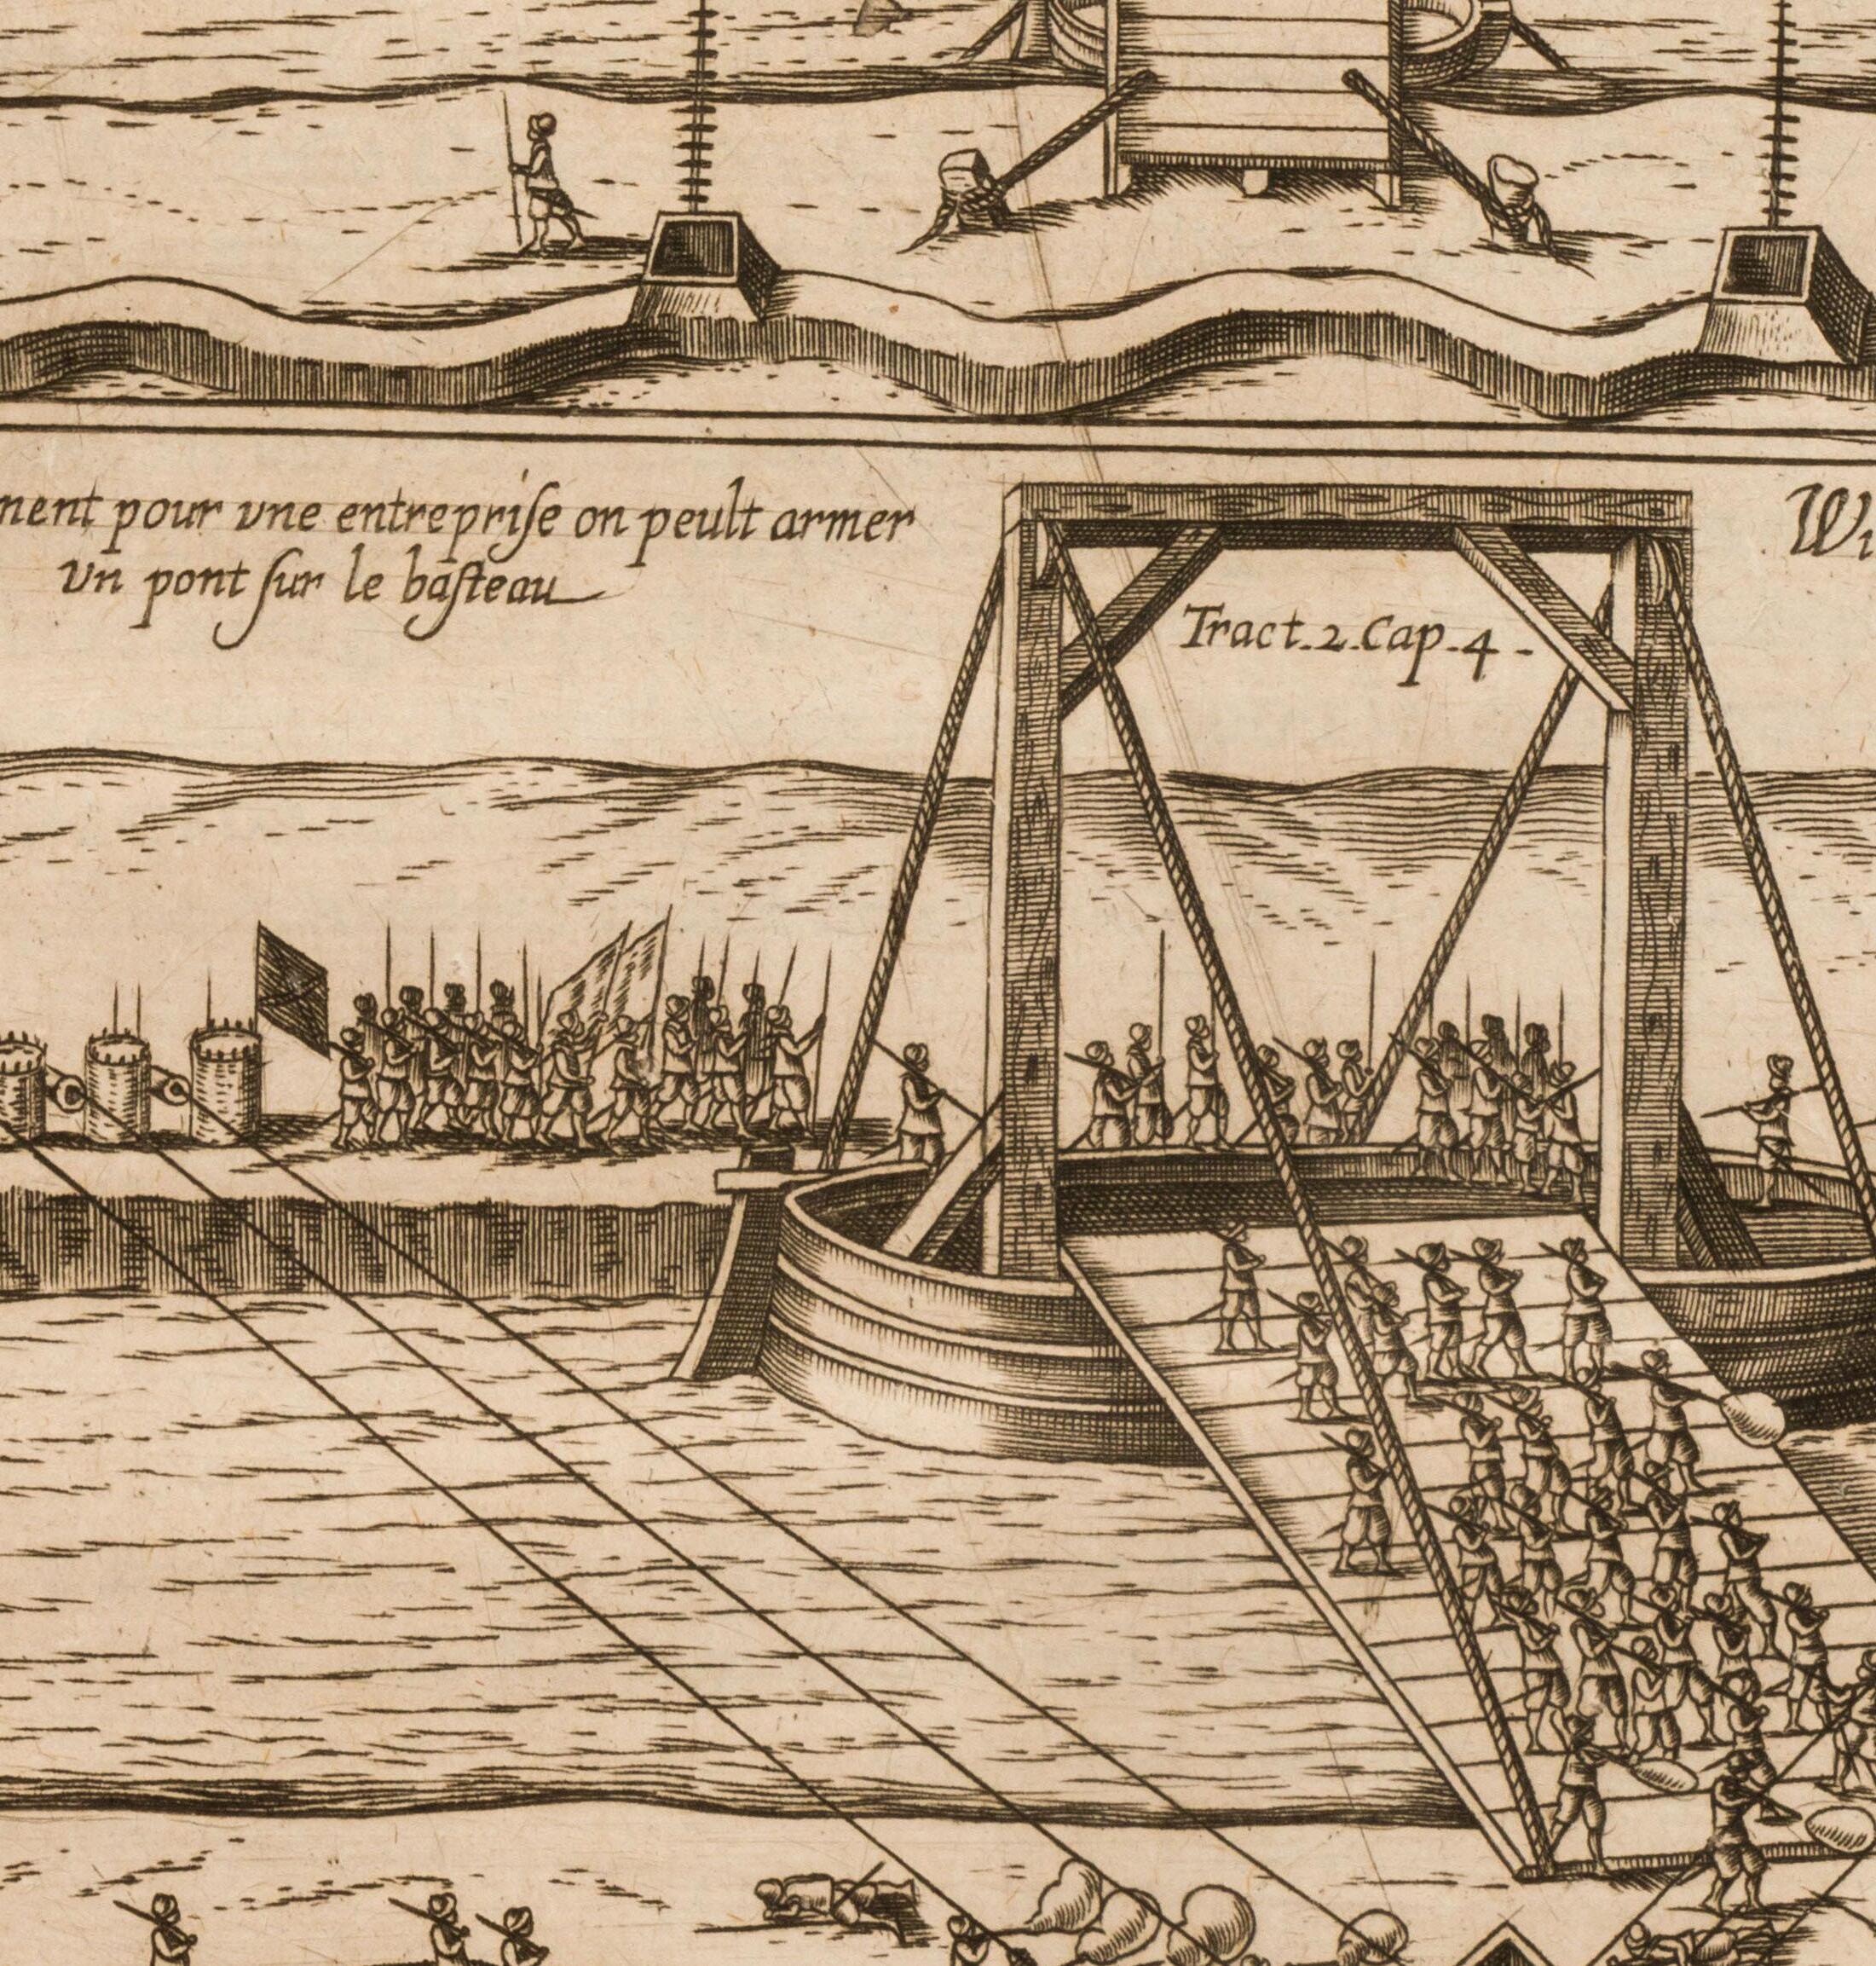 ment pour vne entrepriſe on peult armer
vn pont ſur le baſteau
Tract. 2. Cap. 4 -
Wi